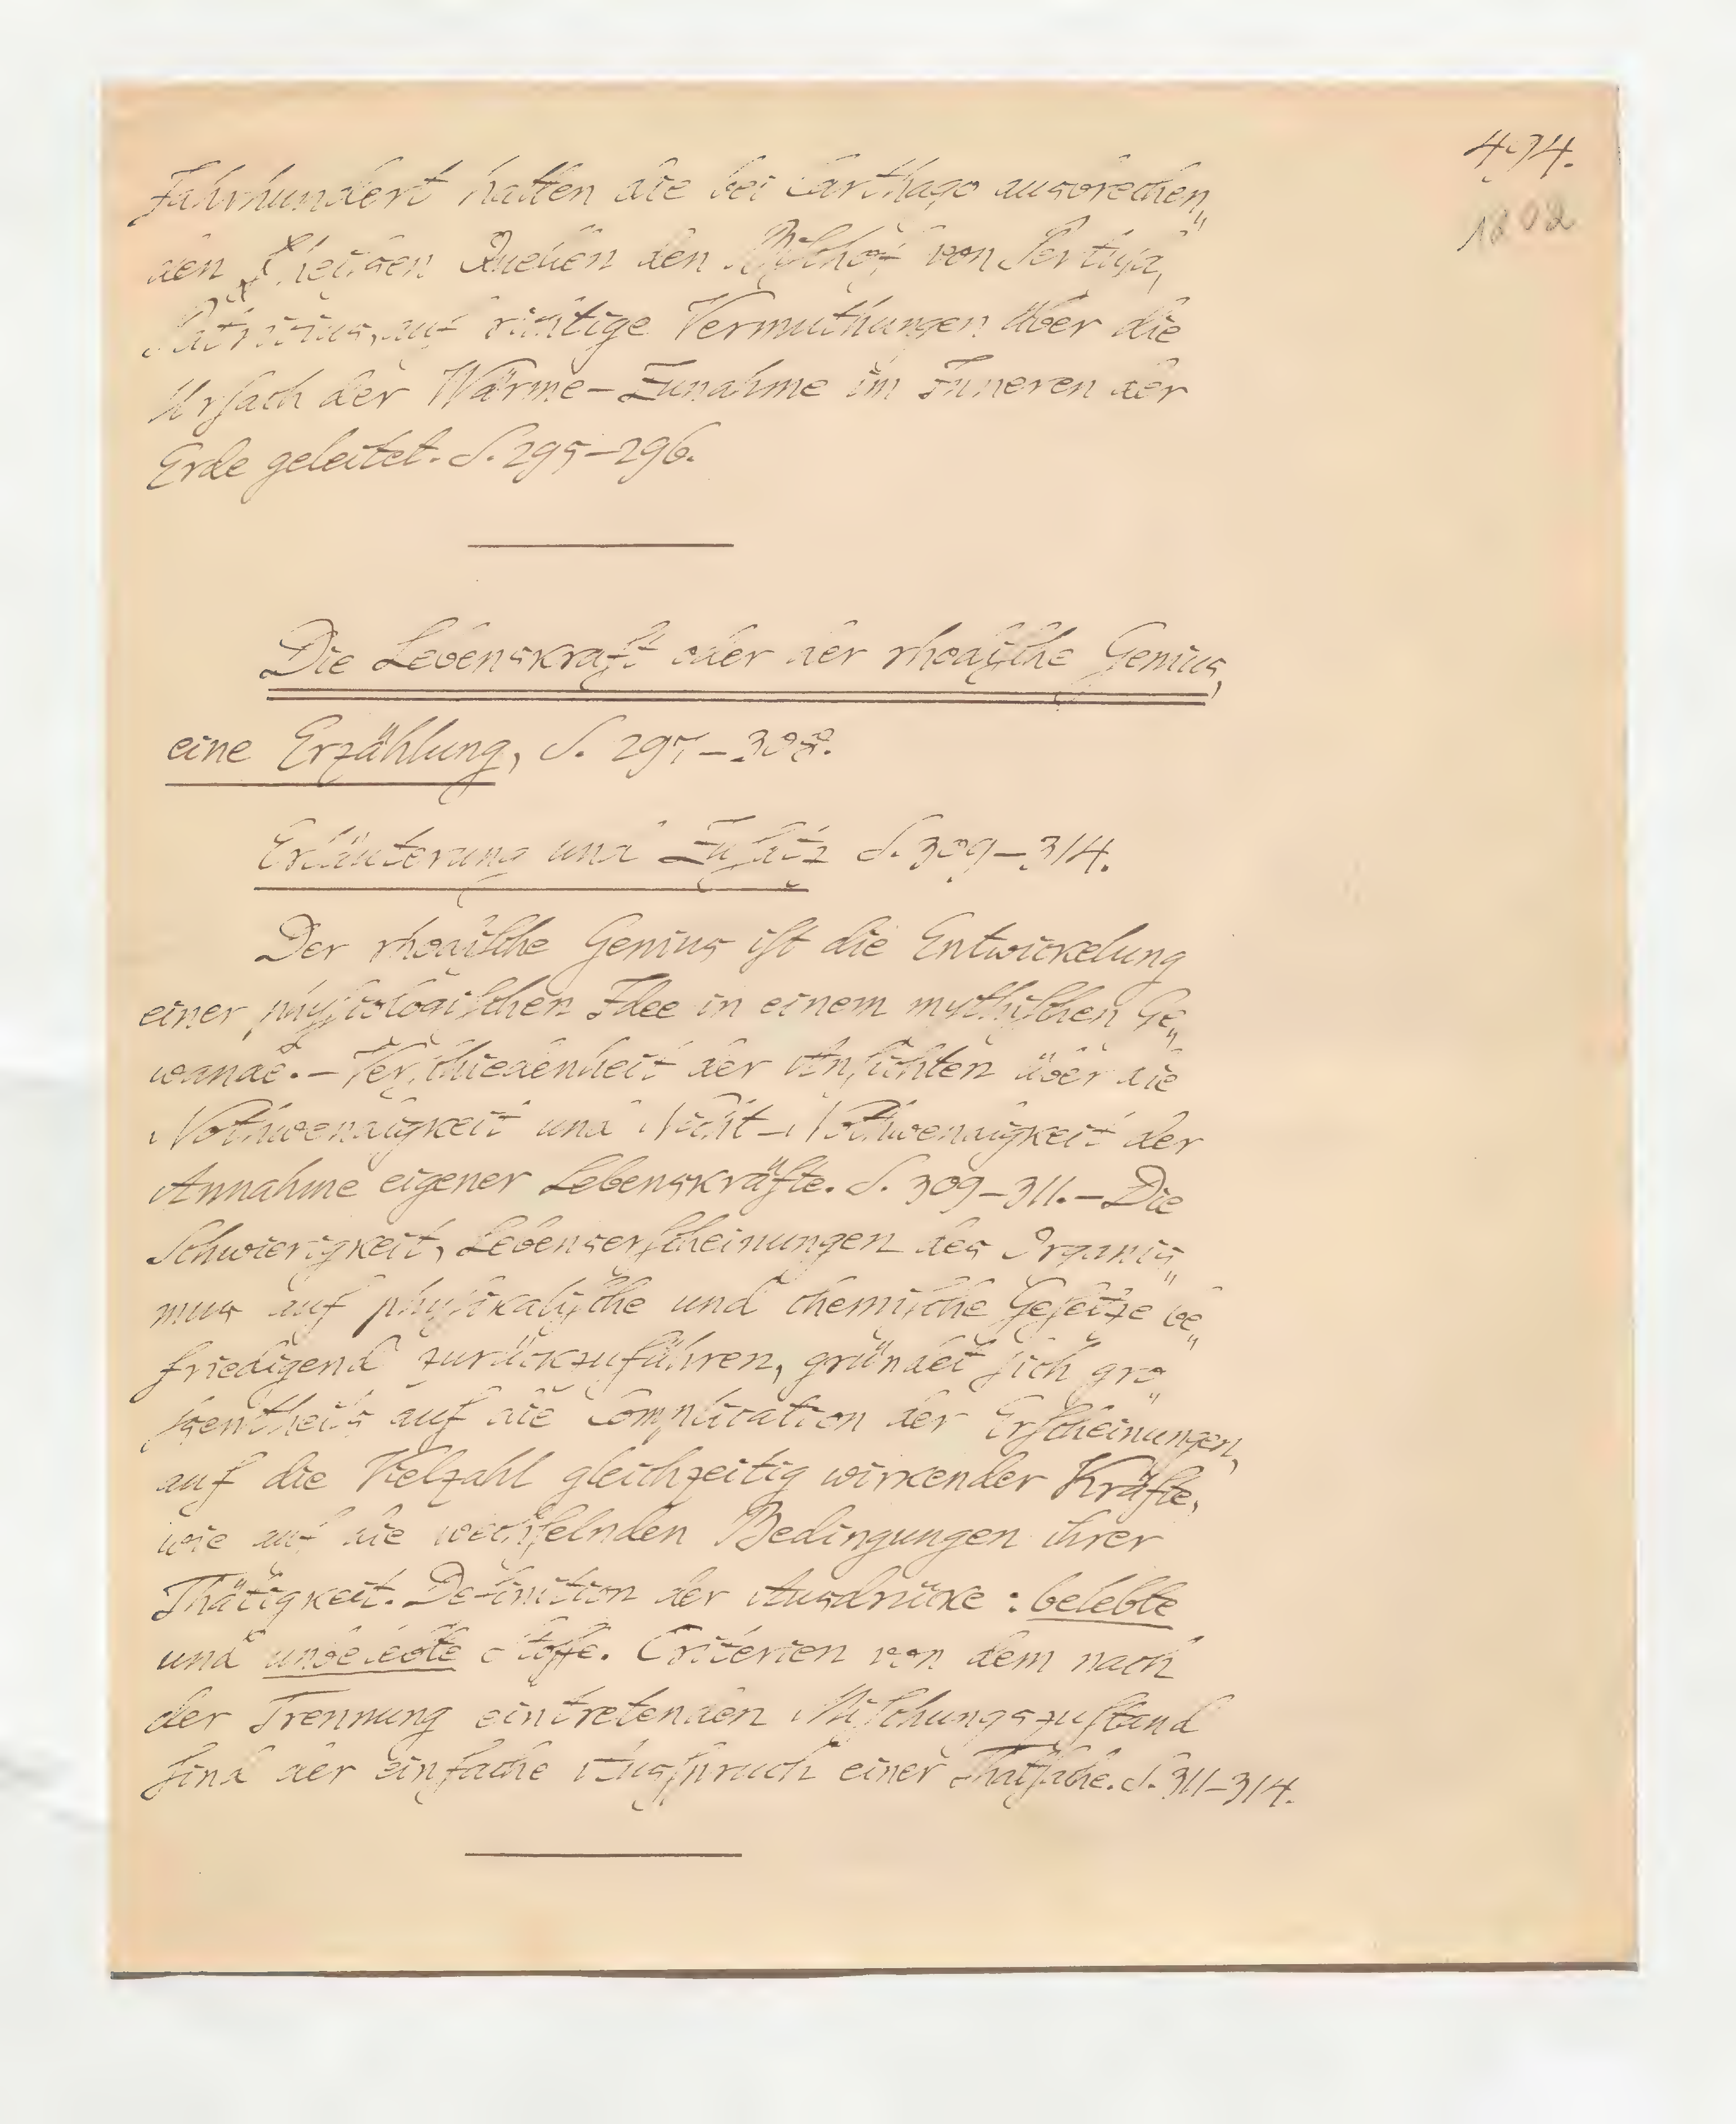 494.
1202
Jahrhundert hatten die bei Carthago ausbrechen„
den heißen Quellen den Bischof von Pertusa,
Patricius, auf richtige Vermuthungen über die
Ursach der Wärme-Zunahme im Inneren der
Erde geleitet. S. 295–296.
Die Lebenskraft oder der rhodische Genius,
eine Erzählung, S. 297–308.
Erläuterung und Zusatz S. 309–314.
Der rhodische Genius ist die Entwickelung
einer physiologischen Idee in einem mythischen Ge„
wande. – Verschiedenheit der Ansichten über die
Nothwendigkeit und Nicht-Nothwendigkeit der
Annahme eigener Lebenskräfte. S. 309–311. – Die
Schwierigkeit, Lebenserscheinungen des Organis„
mus auf physikalische und chemische Gesetze be„
friedigend zurückzuführen, gründet sich grö„
ßentheils auf die Complication der Erscheinungen,
auf die Vielzahl gleichzeitig wirkender Kräfte,
wie auf die wechselnden Bedingungen ihrer
Thätigkeit. Definition der Ausdrücke : belebte
und unbelebte Stoffe. Criterien von dem nach
der Trennung eintretenden Mischungszustand
sind der einfache Ausspruch einer Thatsache. S. 311–314.